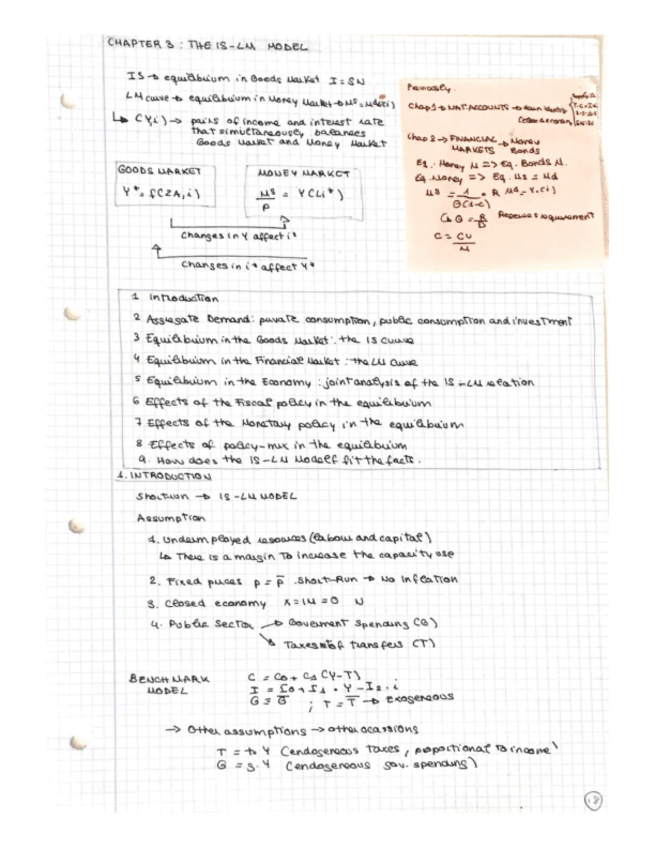 CHAPTER 3: THE IS-LM MODEL
IS → equilibrium in Goods Market I = SN
LM curve → equilibrium in Money Market → MS = Md(Y,i)
↳ (Y,i) → pairs of income and interest rate
that simultaneously balances
Goods Market and Money Market
GOODS MARKET
Y* = f(ZA, i)
MONEY MARKET
MS/P = Y L(i*)
Changes in Y affect i*
Changes in i* affect Y*
Previously.
Chap 1 → NAT. ACCOUNTS → main identity
Chap 2 → FINANCIAL MARKETS → Money
Bonds
Eq. Money M => Eq. Bonds M.
Eq. Money => Eq. Ms = Md
Reserves requirement
C = CU/M
1 Introduction
2 Aggregate Demand: private consumption, public consumption and investment
3 Equilibrium in the Goods Market: the IS curve
4 Equilibrium in the Financial Market: the LM curve
5 Equilibrium in the Economy: joint analysis of the IS-LM relation
6 Effects of the Fiscal policy in the equilibrium
7 Effects of the Monetary policy in the equilibrium
8 Effects of policy-mix in the equilibrium
9. How does the IS-LM Model fit the facts.
1. INTRODUCTION
Short run → IS-LM MODEL
Assumption
1. Underemployed resources (labour and capital)
↳ There is a margin to increase the capacity use
2. Fixed prices p = p̄. Short-Run → No Inflation
3. Closed economy X = IM = 0
4. Public Sector → Goverment Spending (G)
↘ Taxes net of transfers (T)
BENCHMARK
MODEL
C = C0 + C1 (Y-T)
I = I0 + I1 · Y - I2 · i
G = Ḡ ; T = T̄ → Exogeneous
→ Other assumptions → other ocassions
T = t · Y (endogeneous taxes, proportional to income)
G = g · Y (endogeneous gov. spending)
18